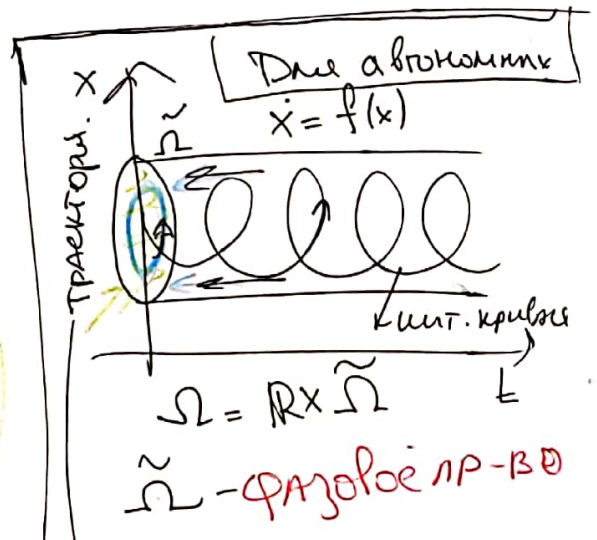 Для автономных
ẋ = f(x)
x
Ω̃
Траектория.
инт. кривая
t
Ω = ℝ × Ω̃
Ω̃ - фазовое пр-во